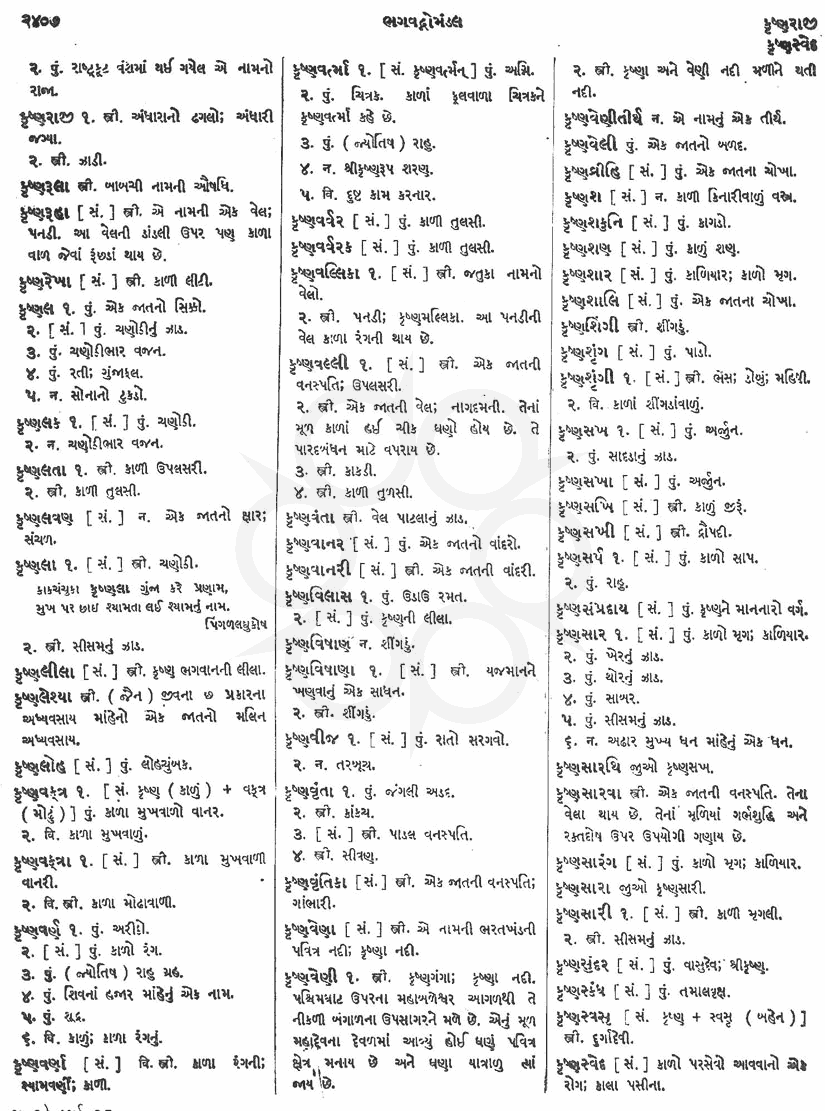 ૨૪૦૭
ભગવદ્ગોમંડલ
કૃષ્ણરાજી
કૃષ્ણસ્વેદ
૨. પું. રાષ્ટ્રકૂટ વંશમાં થઈ ગયેલ એ નામનો
રાજા.
કૃષ્ણરાજી ૧. સ્ત્રી. અંધારાનો ઢગલો; અંધારી
જગ્યા.
૨. સ્ત્રી. ઝાડી.
કૃષ્ણરૂલા સ્ત્રી. બાબચી નામની ઔષધિ.
કૃષ્ણરૂહા [ સં. ] સ્ત્રી. એ નામની એક વેલ;
પનડી. આ વેલની ડાંડલી ઉપર પણ કાળા
વાળ જેવાં રૂંછડાં થાય છે.
કૃષ્ણરેખા [ સં. ] સ્ત્રી. કાળી લીટી.
કૃષ્ણલ ૧. પું. એક જાતનો સિક્કો.
૨. [ સં. ] પું. ચણોઠીનું ઝાડ.
૩. પું. ચણોઠીભાર વજન.
૪. પું. રતી; ગુંજાફલ.
૫. ન. સોનાનો ટુકડો.
કૃષ્ણલક ૧. [ સં. ] પું. ચણોઠી.
૨. ન. ચણોઠીભાર વજન.
કૃષ્ણલતા ૧. સ્ત્રી. કાળી ઉપલસરી.
૨. સ્ત્રી. કાળી તુલસી.
કૃષ્ણલવણ [ સં. ] ન. એક જાતનો ક્ષાર;
સંચળ.
કૃષ્ણલા ૧. [ સં. ] સ્ત્રી. ચણોઠી.
કાકચંચુકા કૃષ્ણલા ગુંજ કરે પ્રણામ,
મુખ પર છાઈ શ્યામતા લઈ શ્યામનું નામ.
પિંગળલઘુકોષ
૨. સ્ત્રી. સીસમનું ઝાડ.
કૃષ્ણલીલા [ સં. ] સ્ત્રી. કૃષ્ણ ભગવાનની લીલા.
કૃષ્ણલેશ્યા સ્ત્રી. ( જૈન ) જીવના છ પ્રકારના
અધ્યવસાય માંહેનો એક જાતનો મલિન
અધ્યવસાય.
કૃષ્ણલોહ [ સં. ] પું. લોહચુંબક.
કૃષ્ણવક્ત્ર ૧. [ સં. કૃષ્ણ ( કાળું ) + વક્ત્ર
( મોઢું ) ] પું. કાળા મુખવાળો વાનર.
૨. વિ. કાળા મુખવાળું.
કૃષ્ણવક્ત્રા ૧. [ સં. ] સ્ત્રી. કાળા મુખવાળી
વાનરી.
૨. વિ. સ્ત્રી. કાળા મોઢાવાળી.
કૃષ્ણવર્ણ ૧. પું. અરીઠો.
૨. [ સં. ] પું. કાળો રંગ.
૩. પું. ( જ્યોતિષ ) રાહુ ગ્રહ.
૪. પું. શિવનાં હજાર માંહેનું એક નામ.
૫. પું. શુદ્ર.
૬. વિ. કાળું; કાળા રંગનું.
કૃષ્ણવર્ણા [ સં. ] વિ. સ્ત્રી. કાળા રંગની;
શ્યામવર્ણી; કાળી.
કૃષ્ણવર્ત્મા ૧. [ સં. કૃષ્ણવર્ત્મન્ ] પું. અગ્નિ.
૨. પું. ચિત્રક. કાળાં ફૂલવાળા ચિત્રકને
કૃષ્ણવર્ત્મા કહે છે.
૩. પું. ( જ્યોતિષ ) રાહુ.
૪. ન. શ્રીકૃષ્ણરૂપ શરણ.
૫. વિ. દુષ્ટ કામ કરનાર.
કૃષ્ણવર્વર [ સં. ] પું. કાળી તુલસી.
કૃષ્ણવર્વરક [ સં. ] પું. કાળી તુલસી.
કૃષ્ણવલ્લિકા ૧. [ સં. ] સ્ત્રી. જતુકા નામનો
વેલો.
૨. સ્ત્રી. પનડી; કૃષ્ણમલ્લિકા. આ પનડીની
વેલ કાળા રંગની થાય છે.
કૃષ્ણવલ્લી ૧. [ સં. ] સ્ત્રી. એક જાતની
વનસ્પતિ; ઉપલસરી.
૨. સ્ત્રી. એક જાતની વેલ; નાગદમની. તેનાં
મૂળ કાળાં હઈ ચીક ઘણો હોય છે. તે
પારદબંધન માટે વપરાય છે.
૩. સ્ત્રી. કાકડી.
૪. સ્ત્રી. કાળી તુળસી.
કૃષ્ણવંતા સ્ત્રી. વેલ પાટલાનું ઝાડ.
કૃષ્ણવાનર [ સં. ] પું. એક જાતનો વાંદરો.
કૃષ્ણવાનરી [ સં. ] સ્ત્રી. એક જાતની વાંદરી.
કૃષ્ણવિલાસ ૧. પું. ઉડાઉ રમત.
૨. [ સં. ] પું. કૃષ્ણની લીલા.
કૃષ્ણવિષાણ ન. શીંગડું.
કૃષ્ણવિષાણા ૧. [ સં. ] સ્ત્રી. યજમાનને
ખણવાનું એક સાધન.
૨. સ્ત્રી. શીંગડું.
કૃષ્ણવીજ ૧. [ સં. ] પું. રાતો સરગવો.
૨. ન. તરબૂચ.
કૃષ્ણવૃંતા ૧. પું. જંગલી અડદ.
૨. સ્ત્રી. કાંકચ.
૩. [ સં. ] સ્ત્રી. પાડલ વનસ્પતિ.
૪. સ્ત્રી. સીવણ.
કૃષ્ણવૃંતિકા [ સં. ] સ્ત્રી. એક જાતની વનસ્પતિ;
ગાંભારી.
કૃષ્ણવેણા [ સં. ] સ્ત્રી. એ નામની ભરતખંડની
પવિત્ર નદી; કૃષ્ણા નદી.
કૃષ્ણવેણી ૧. સ્ત્રી. કૃષ્ણગંગા; કૃષ્ણા નદી.
પશ્ચિમઘાટ ઉપરના મહાબળેશ્વર આગળથી તે
નીકળી બંગાળના ઉપસાગરને મળે છે. એનું મૂળ
મહાદેવના દેવળમાં આવ્યું હોઈ ઘણું પવિત્ર
ક્ષેત્ર મનાય છે અને ઘણા યાત્રાળુ ત્યાં
જાય છે.
૨. સ્ત્રી. કૃષ્ણા અને વેણી નદી મળીને થતી
નદી.
કૃષ્ણવેણીતીર્થ ન. એ નામનું એક તીર્થ.
કૃષ્ણવેલી પું. એક જાતનો બળદ.
કૃષ્ણવ્રીહિ [ સં. ] પું. એક જાતના ચોખા.
કૃષ્ણશ [ સં. ] ન. કાળી કિનારીવાળું વસ્ત્ર.
કૃષ્ણશકુનિ [ સં. ] પું. કાગડો.
કૃષ્ણશણ [ સં. ] પું. કાળું શણ.
કૃષ્ણશાર [ સં. ] પું. કાળિયાર; કાળો મૃગ.
કૃષ્ણશાલિ [ સં. ] પું. એક જાતના ચોખા.
કૃષ્ણશિંગી સ્ત્રી. શીંગડું.
કૃષ્ણશૃંગ [ સં. ] પું. પાડો.
કૃષ્ણશૃંગી ૧. [ સં. ] સ્ત્રી. ભેંસ; ડોબું; મહિષી.
૨. વિ. કાળાં શીંગડાંવાળું.
કૃષ્ણસખ ૧. [ સં. ] પું. અર્જુન.
૨. પું. સાદડાનું ઝાડ.
કૃષ્ણસખા [ સં. ] પું. અર્જુન.
કૃષ્ણસખિ [ સં. ] સ્ત્રી. કાળું જીરૂં.
કૃષ્ણસખી [ સં. ] સ્ત્રી. દ્રૌપદી.
કૃષ્ણસર્પ ૧. [ સં. ] પું. કાળો સાપ.
૨. પું. રાહુ.
કૃષ્ણસંપ્રદાય [ સં. ] પું. કૃષ્ણને માનનારો વર્ગ.
કૃષ્ણસાર ૧. [ સં. ] પું. કાળો મૃગ; કાળિયાર.
૨. પું. ખેરનું ઝાડ.
૩. પું. થોરનું ઝાડ.
૪. પું. સાબર.
૫. પું. સીસમનું ઝાડ.
૬. ન. અઢાર મુખ્ય ધન માંહેનું એક ધન.
કૃષ્ણસારથિ જુઓ કૃષ્ણસખ.
કૃષ્ણસારવા સ્ત્રી. એક જાતની વનસ્પતિ. તેના
વેલા થાય છે. તેનાં મૂળિયાં ગર્ભશુદ્ધિ અને
રક્તદોષ ઉપર ઉપયોગી ગણાય છે.
કૃષ્ણસારંગ [ સં. ] પું. કાળો મૃગ; કાળિયાર.
કૃષ્ણસારા જુઓ કૃષ્ણસારી.
કૃષ્ણસારી ૧. [ સં. ] સ્ત્રી. કાળી મૃગલી.
૨. સ્ત્રી. સીસમનું ઝાડ.
કૃષ્ણસુંદર [ સં. ] પું. વાસુદેવ; શ્રીકૃષ્ણ.
કૃષ્ણસ્કંધ [ સં. ] પું. તમાલવૃક્ષ.
કૃષ્ણસ્વસૃ [ સં. કૃષ્ણ + સ્વસૃ ( બહેન ) ]
સ્ત્રી. દુર્ગાદેવી.
કૃષ્ણસ્વેદ [ સં. ] કાળો પરસેવો આવવાનો એક
રોગ; કાલા પસીના.